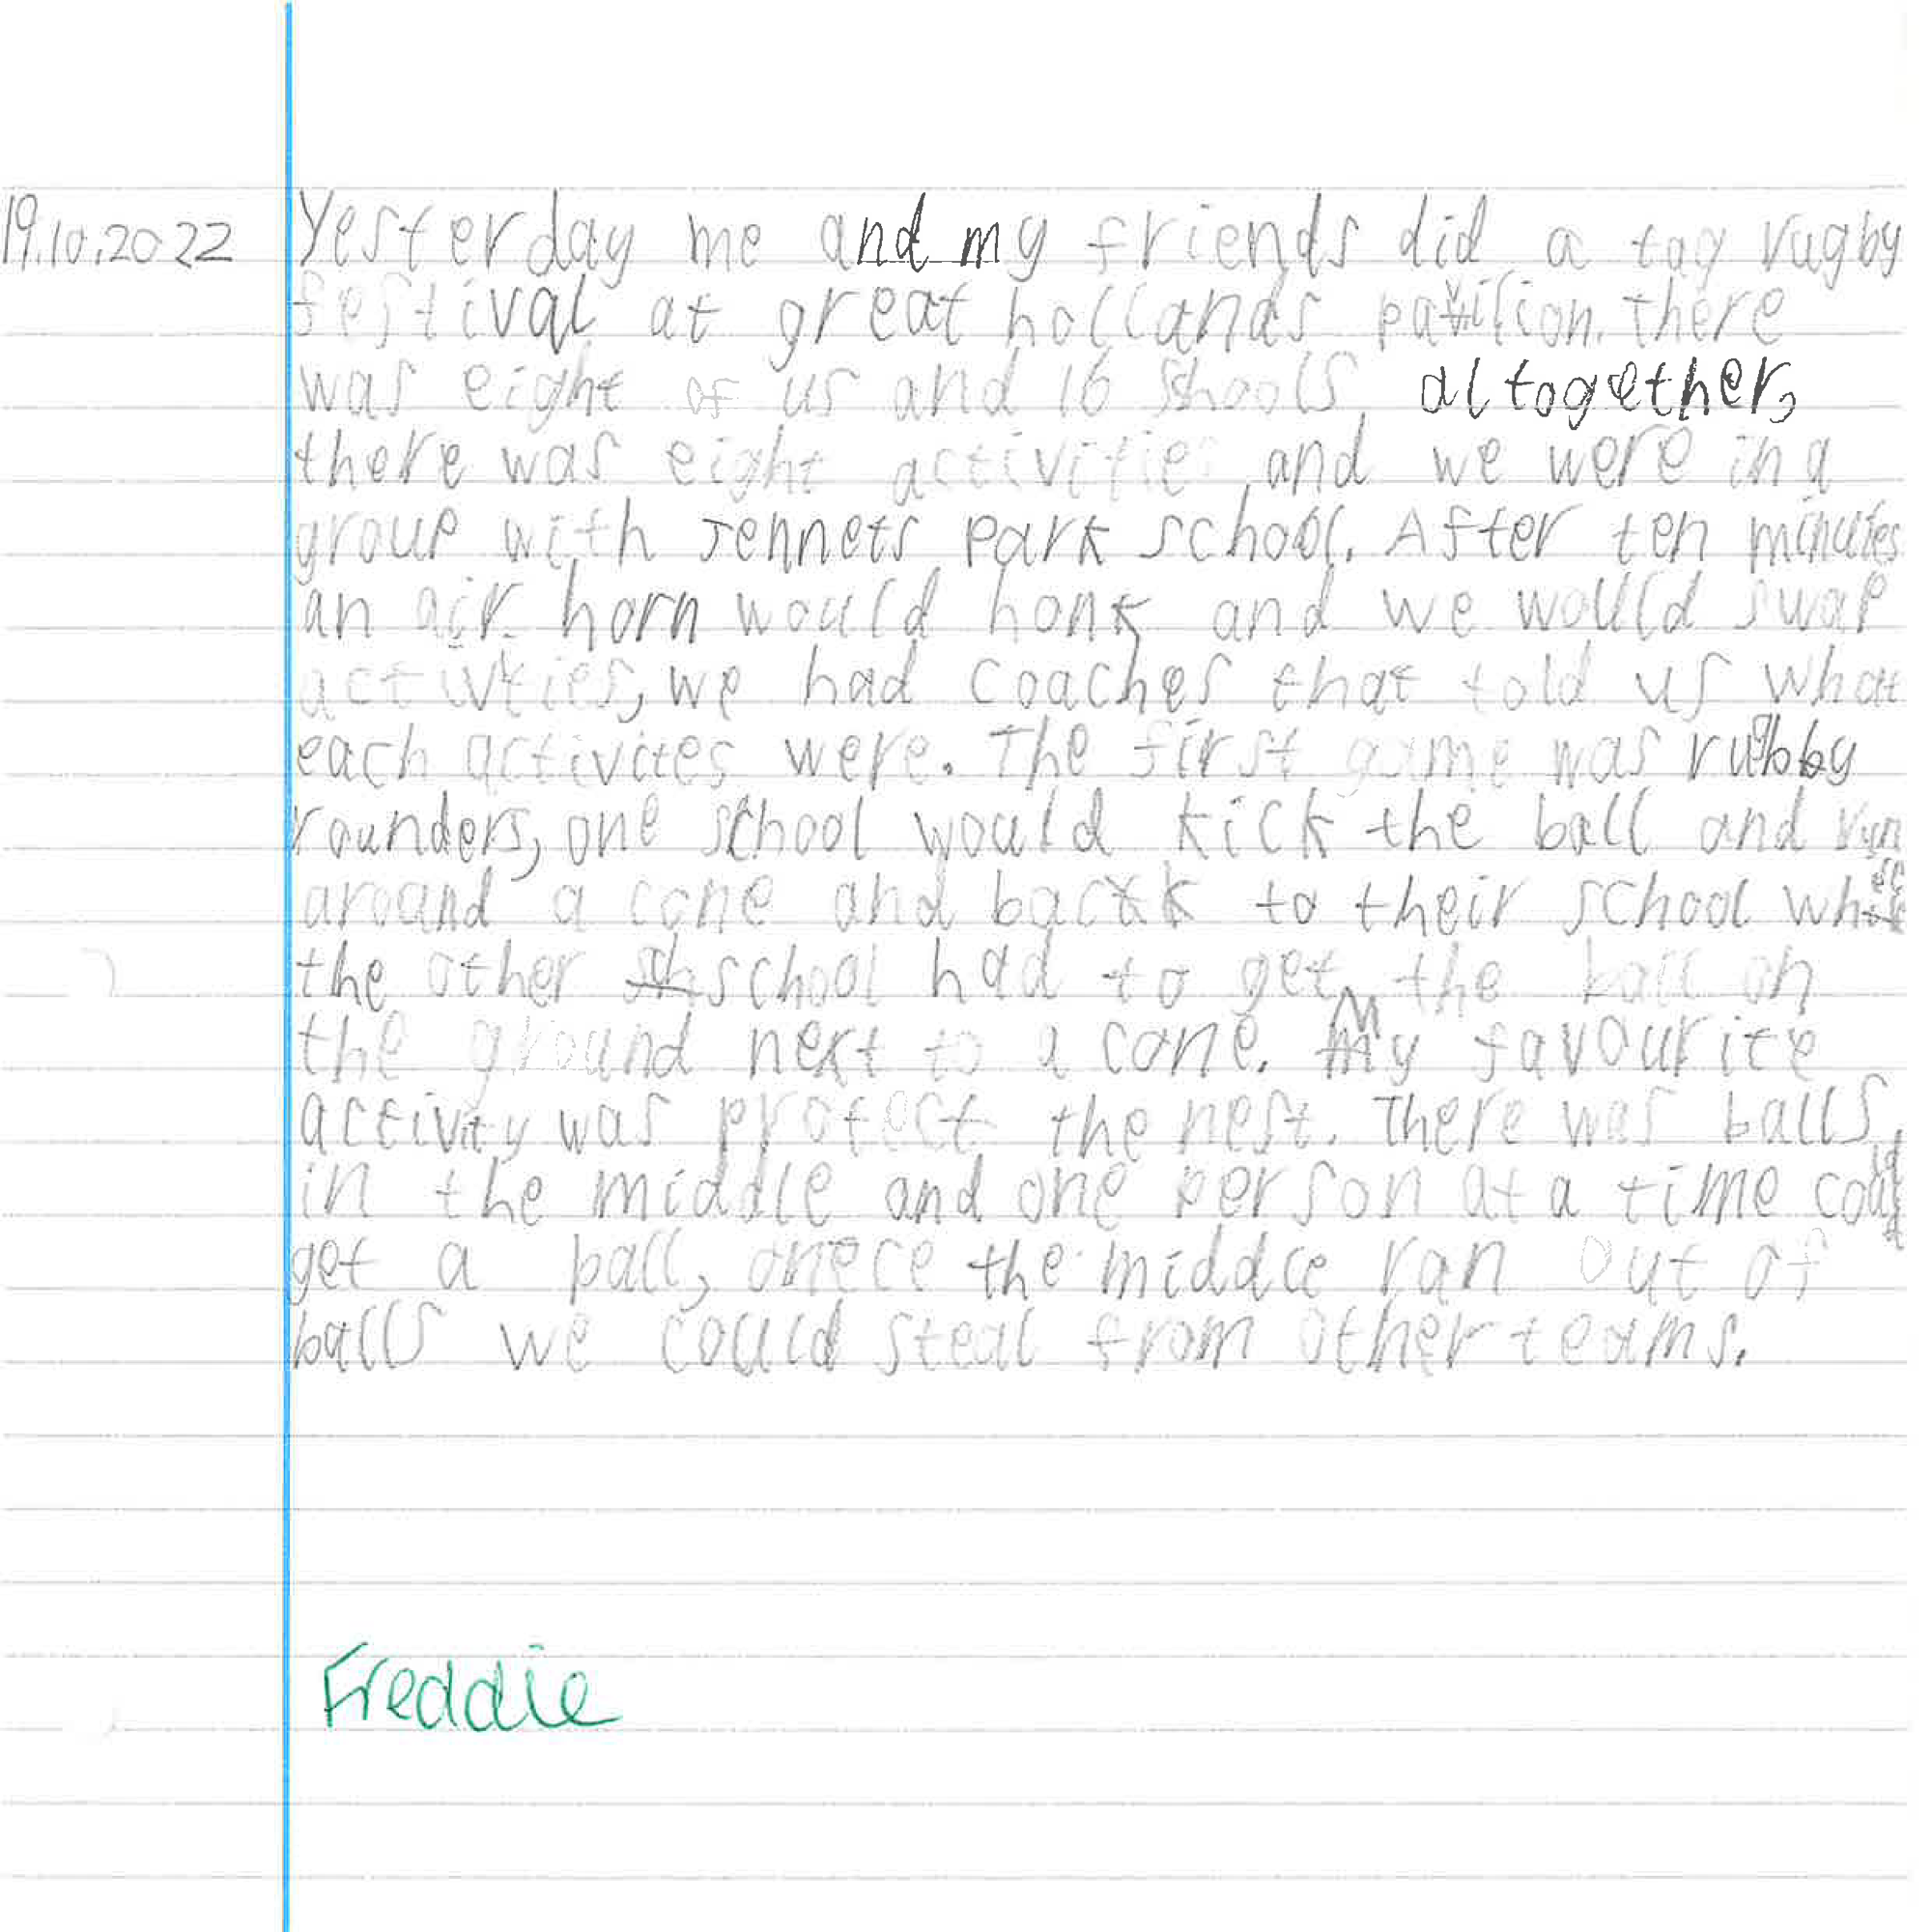 19.10.2022 Yesterday me and my friends did a tag rugby
festival at great hollands pavilion. There
was eight of us and 16 shools altogether,
there was eight activities and we were in a
group with Jennets park school. After ten minutes
an air horn would honk and we would swap
activities, we had coaches that told us what
each activites were. The first game was rugby
rounders, one school would kick the ball and run
around a cone and back to their school while
the other school had to get the ball on
the ground next to a cone. My favourite
activity was protect the nest. There was balls
in the middle and one person at a time could
get a ball, onece the middle ran out of
balls we could steal from other teams.
Freddie